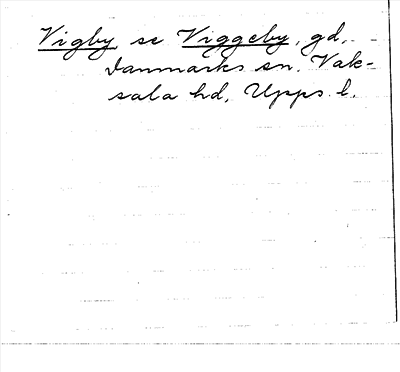 Vigby se Viggeby, gd,
Danmarks sn. Vak-
sala hd, Upps. l.